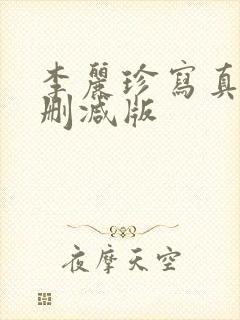 李麗珍寫真
刪減版
夜摩天空